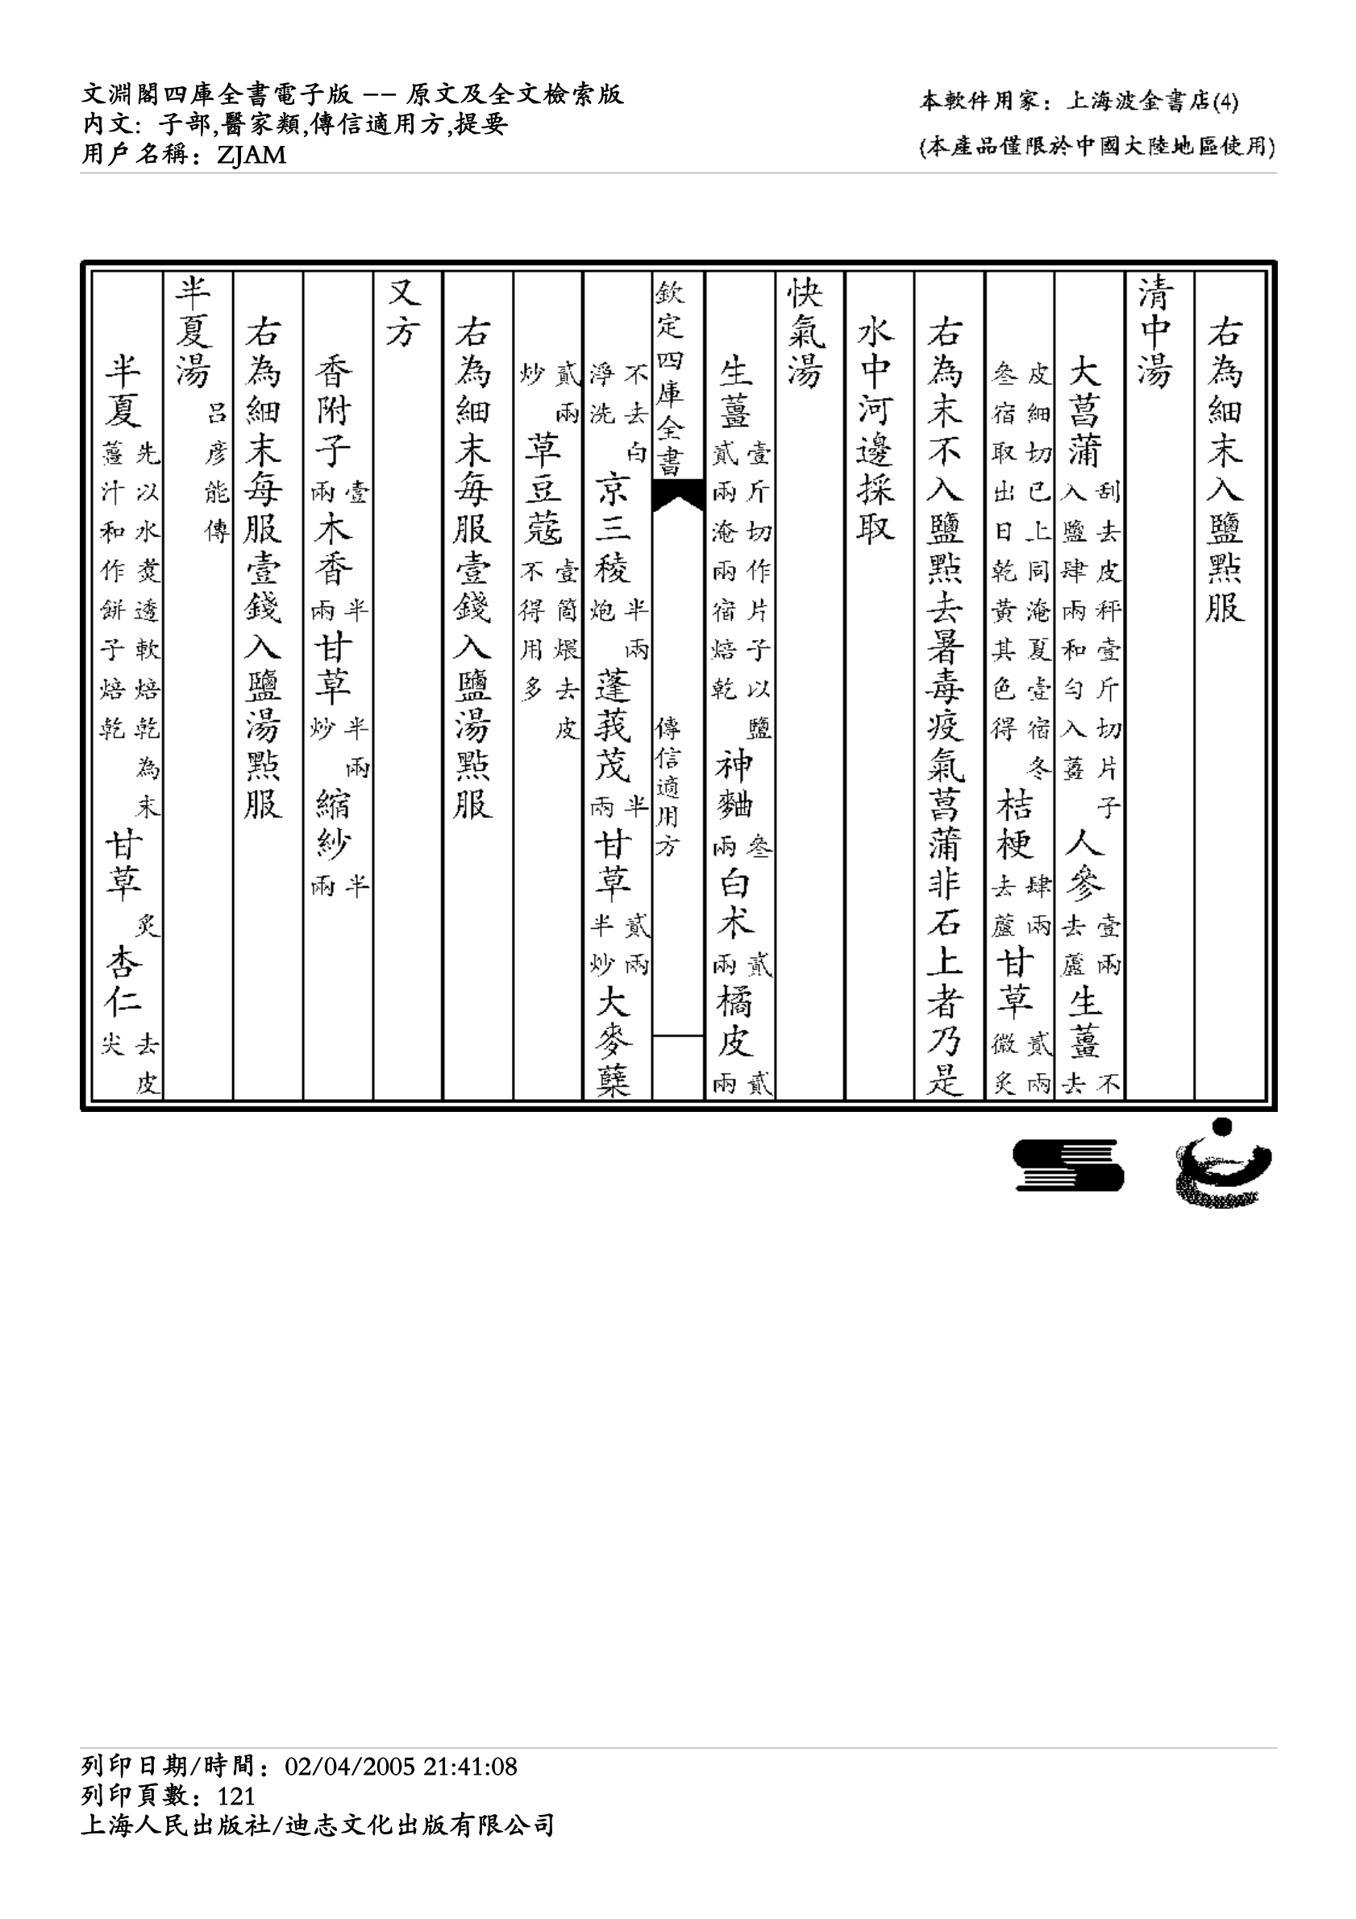 文淵閣四庫全書電子版 −− 原文及全文檢索版
內文：子部,醫家類,傳信適用方,提要
用戶名稱：ZJAM
本軟件用家：上海波金書店(4)
(本產品僅限於中國大陸地區使用)
右為細末入鹽點服
清中湯
大菖蒲刮去皮秤壹斤切片子入鹽肆兩和勻入薑人參壹兩去蘆生薑不去
皮細切已上同淹夏壹宿冬叁宿取出日乾黃其色得桔梗肆兩去蘆甘草貳兩微炙
右為末不入鹽點去暑毒疫氣菖蒲非石上者乃是
水中河邊採取
快氣湯
生薑壹斤切作片子以鹽貳兩淹兩宿焙乾神麯叁兩白术貳兩橘皮貳兩
欽定四庫全書
傳信適用方
不去白淨洗京三稜半兩炮蓬莪茂半兩甘草貳兩半炒大麥櫱
貳兩炒草豆蔻壹箇煨去皮不得用多
右為細末每服壹錢入鹽湯點服
又方
香附子壹兩木香半兩甘草半兩炒縮紗半兩
右為細末每服壹錢入鹽湯點服
半夏湯呂彥能傳
半夏先以水煑透軟焙乾為末薑汁和作餅子焙乾甘草炙杏仁去皮尖
列印日期/時間：02/04/2005 21:41:08
列印頁數：121
上海人民出版社/迪志文化出版有限公司